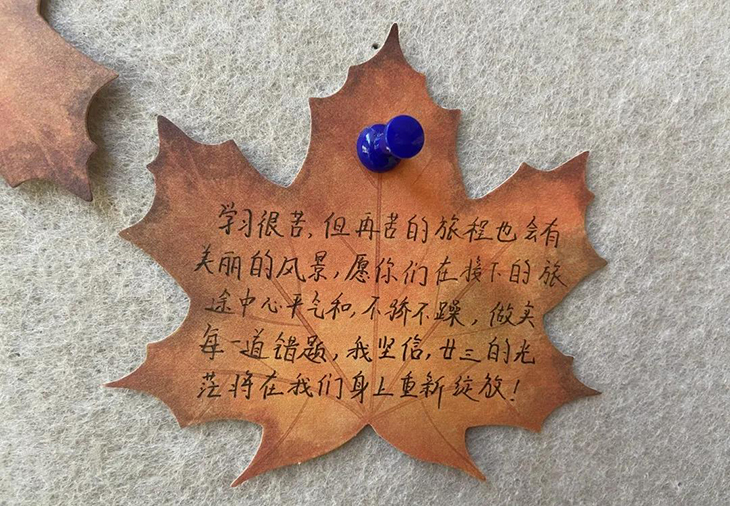 学习很苦,但再苦的旅程也会有
美丽的风景,愿你们在接下的旅
途中心平气和,不骄不躁,做实
每一道错题,我坚信,廿三的光
茫将在我们身上重新绽放!